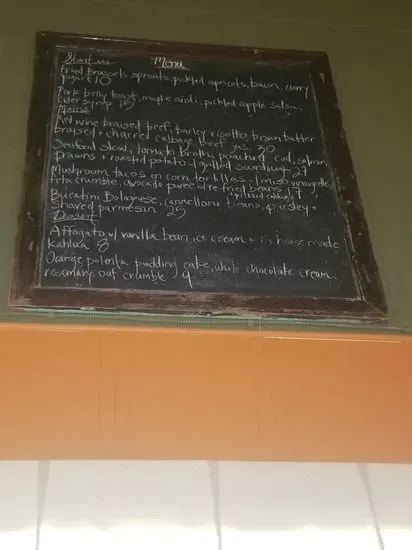 Menu
Starters
Fried Brussels sprouts, pickled apricots, bacon, curry
yogurt 10
Pork belly toast, maple aioli, pickled apple salsa,
cider syrup 15
Mains
Red wine braised beef, barley risotto, brown butter
braised + charred cabbage, beef jus. 30
Seafood stew, tomato broth, poached cod, salmon,
prawns + roasted potato w/ grilled sourdough 27
Mushroom tacos on corn tortillas w/ miso vinaigrette,
feta crumble, avocado puree w/ refried beans 17
+ pickled cabbage
Bucatini Bolognese, cannellini beans, parsley +
shaved parmesan 25
Dessert
Affogato w/ vanilla bean ice cream + in house made
kahlua 8
Orange polenta pudding cake, white chocolate cream
rosemary oat crumble 9